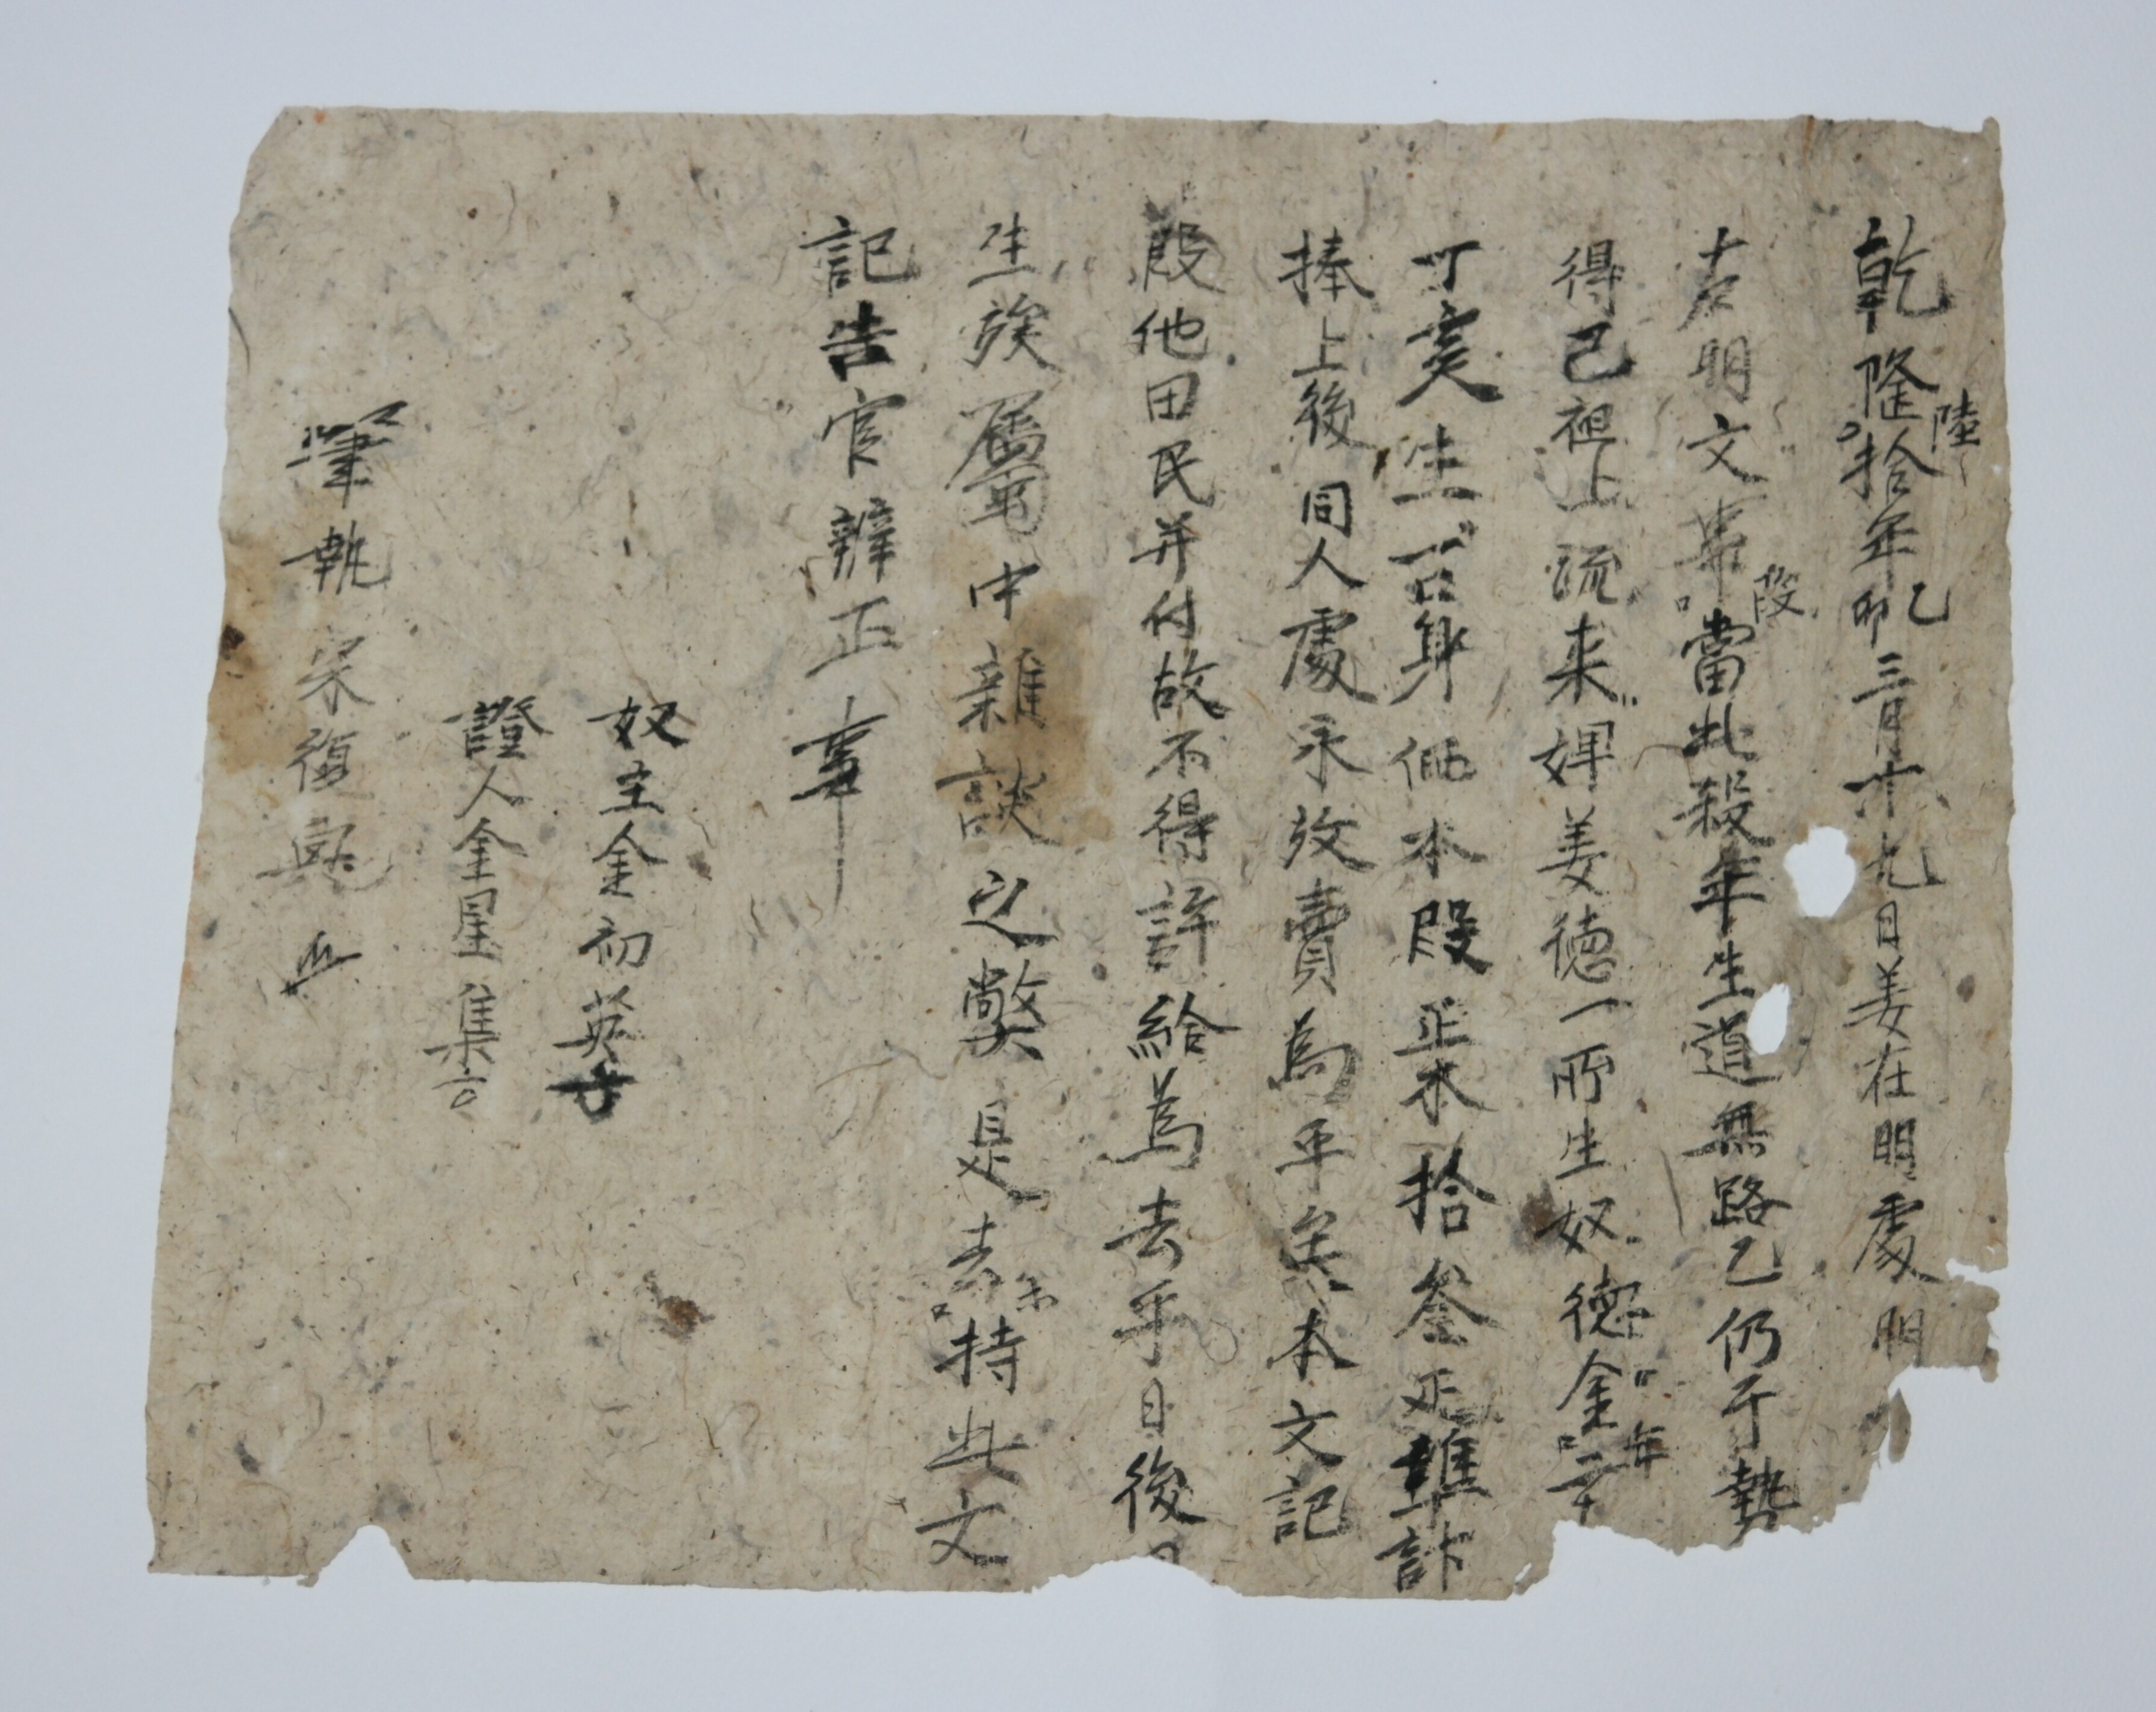 乾隆陸拾年乙卯三月十九日姜在明處明
右明文事段當此殺年生道無路乙仍于勢
得已祖上流来婢姜德一所生奴德金年二十
丁亥生一口身価本段正木拾叄疋準計
捧上後同人處永放賣為乎矣本文記
段他田民并付故不得許給為去乎日後
生族属中雜談之弊是去木持此文
記告官辨正事
奴主金初英
證人金星集
筆執宋復